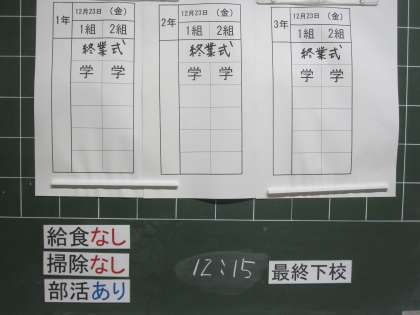 1年 12月23日 (金)
1組 2組
終業式
学 学
2年 12月23日 (金)
1組 2組
終業式
学 学
3年 12月23日 (金)
1組 2組
終業式
学 学
給食なし
掃除なし
部活あり
12:15 最終下校